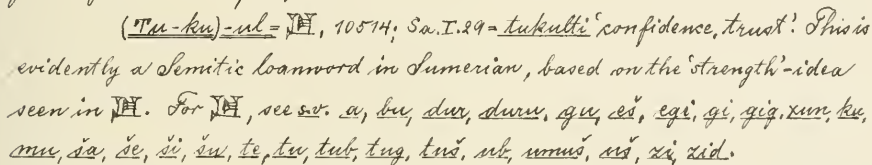 (Tu-ku)-ul = 𒆪, 10514; Sa. I. 29 = tukulti 'confidence, trust'. This is
evidently a Semitic loanword in Sumerian, based on the 'strength'-idea
seen in 𒆪. For 𒆪, see s.v. a, bu, dur, duru, gu, eš, egi, gi, gig, xun, ku,
mu, ša, še, ši, šu, te, tu, tub, tug, tuš, ub, umuš, uš, zi, zid.